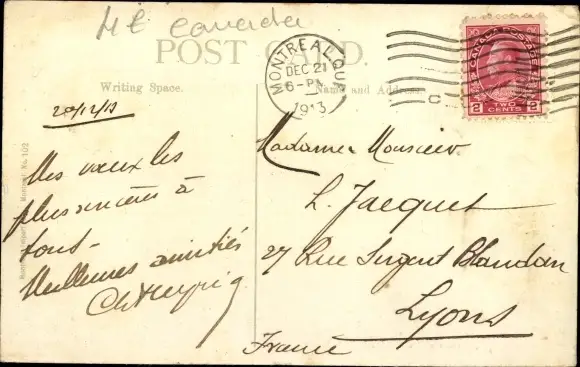 Mt Canada
POST CARD.
Writing Space.
Name and Address
MONTREAL, QUE
DEC 21
6-PM
1913
CANADA POSTAGE
2 TWO CENTS 2
20/12/13
Mes vœux les
plus sincères à
tous -
Meilleures amitiés
Madame Monsieur
L. Jacquet
27 Rue Sergent Blandan
Lyons
France
Montreal. No. 102